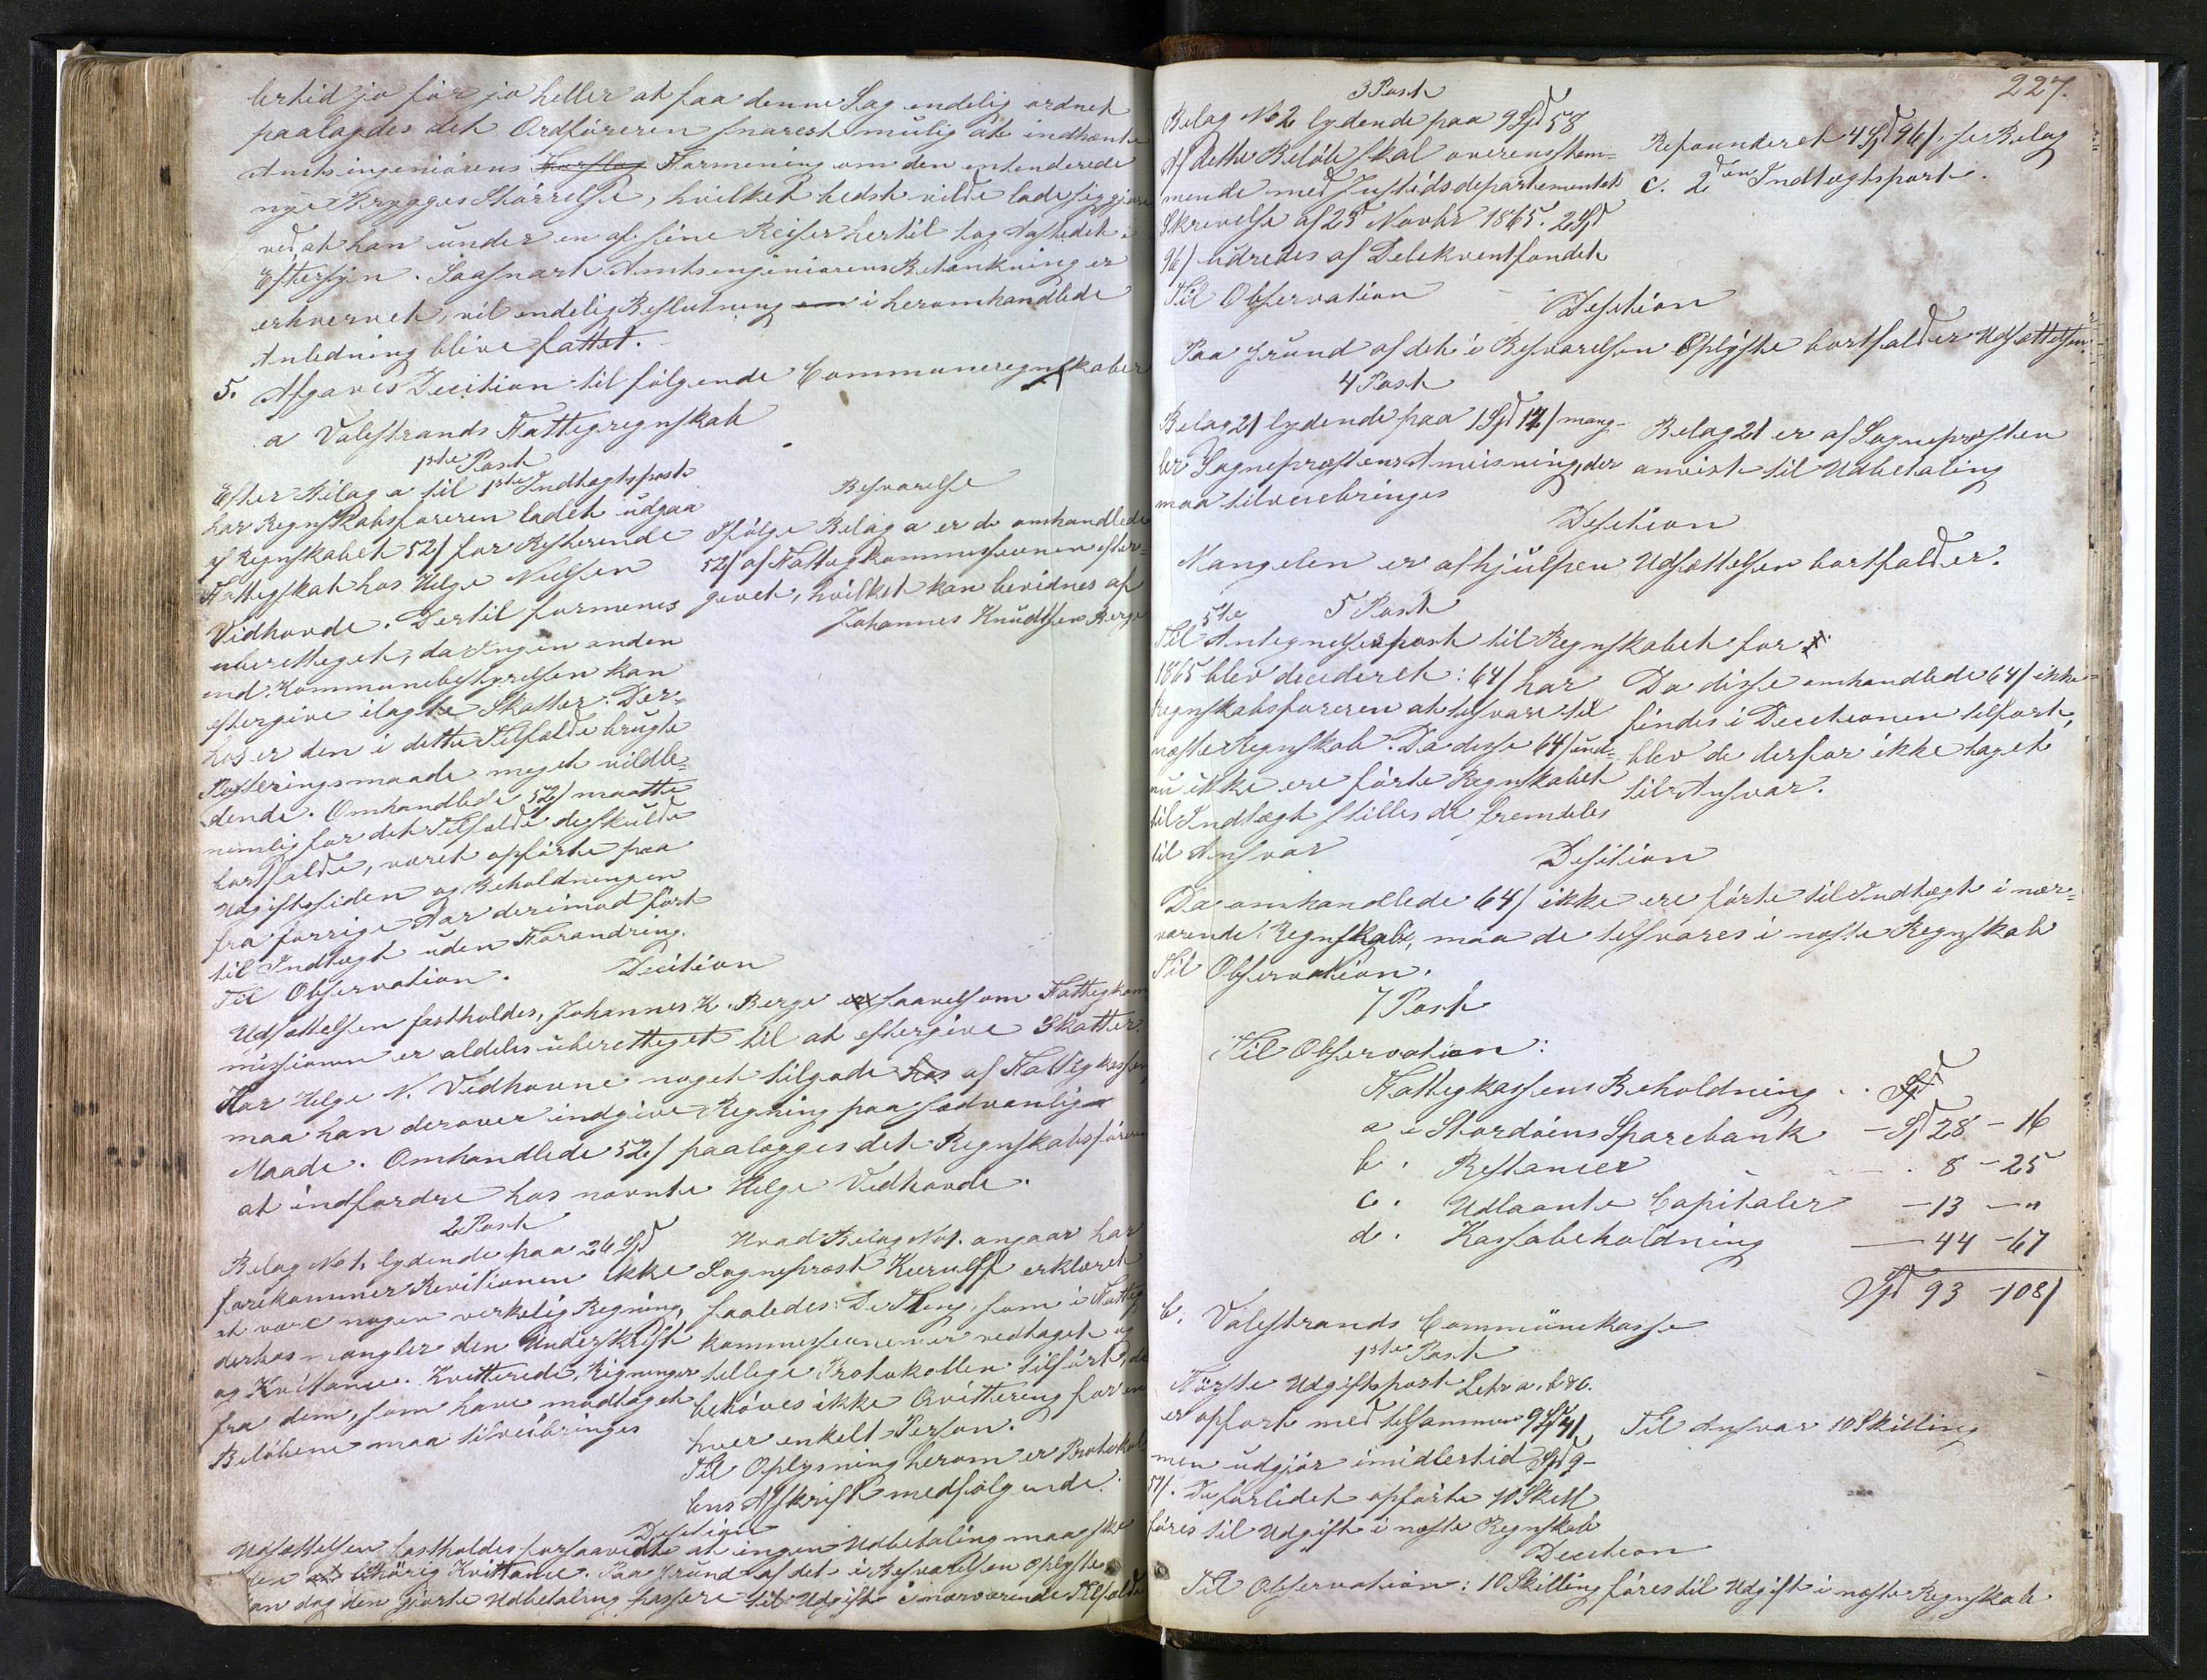 lertid jo før jo heller at faa denne Sag endelig ordnet
paalagdes det Ordføreren snarest mulig at indhente
Amtsingeniørens Forslag Formening om den intenderede
nye Brygges Størrelse, hvilket bedst vilde lade sig gjøre
ved at han under en af sine Reiser hertil tog Astedet i
Eftersyn. Saasnart Amtsingeniørens Betænkning er
erhvervet, vil endelig Beslutning om i heromhandlede
Anledning blive fattet.
5. Afgaves Decition til følgende Communeregnskaber
a Valestrands Fattigregnskab
1ste Post
Efter Bilag a til 1ste Indtægtspost
har Regnskabsføreren ladet udgaa
af Regnskabet 52/ for Resterende
Fattigskat hos Helge Nielsen
Vidhovde. Dertil formenes
uberettiget, da Ingen anden
end Kommunebestyrelsen kan
eftergive ilagte Skatter. Der-
hos er den i dette Tilfælde brugte
Posteringsmaade meget vildle-
dende. Omhandlede 52/ maatte
nemlig for det Tilfælde de skulde
bortfalde, været opførte paa
Udgiftssiden og Beholdningen
fra forrige Aar derimod ført
til Indtægt uden Forandring.
Til Observation.
Besvarelse
Ifølge Belag a er de omhandlede
52/ af Fattigkommissionen efter-
givet, hvilket kan bevidnes af
Johannes Knudsen Berge
Decition
Udsættelsen fastholdes, Johannes K. Berge er saavelsom Fattigkom
missionen er aldeles uberettiget til at eftergive Skatter.
Har Helge N. Vidhovde noget tilgode hos af Fattigkassen,
maa han derover indgive Regning paa sædvanlig
Maade. Omhandlede 52/ paalægges det Regnskabsføreren
at indfordre hos nævnte Helge Vidhovde.
2 Post
Belag No 1, lydende paa 26 Spd
forekommer Revitionen ikke
at være nogen verkelig Regning,
derhos mangler den Underskrift
og Kvittance. Kvitterede Regninger
fra dem, som have modtaget
Beløbene maa tilveibringes
Hvad Bilag No 1. angaar har
Sogneprest Kierulff erklæret
saaledes: De Ting, som i Fattig
kommissionen er vedtaget og
tillige Protokollen tilført, de
behøves ikke Qvittering for en
hver enkelt Person.
Til Oplysning herom er Protokol
lens Afskrift medfølgende.
Desition
Udsættelsen fastholdes forsaavidt at ingen Udbetaling maa ske
uden at lihørig Kvittance. Paa Grund af det i Besvarelsen Oplyste
kan dog den gjorte Udbetaling passere til Udgift i nærværende Tilfælde
227.
3 Post
Belag No 2 lydende paa 9 Spd 58
Af dette Beløb skal overensstem-
mende med Justidsdepartementets
Skrivelse af 23d Novbr 1865. 2 Spd
96/ udredes af Delekventfondet
Til Observation
Refounderet 4 Spd 96/ se Belag
c. 2den Indtægtspost.
Desition
Paa Grund af det i Besvarelsen Oplyste bortfalder Udsættelsen.
4 Post
Belag 21 lydende paa 1 Spd 12/ mang-
ler Sogneprestens Anvisning, der
maa tilveiebringes
Belag 21 er af Sognepresten
anvist til Udbetaling
Desition
Mangelen er afhjulpen Udsættelsen bortfalder.
5 Post
Til 5te Antegnelsespost til Regnskabet for
1865 blev decideret: 64/ har
Regnskabsføreren at tilsvare til
næste Regnskab. Da disse 64/ end-
nu ikke ere førte Regnskabet
til Indtægt stilles de fremdeles
til Ansvar
Da disse omhandlede 64/ ikke
findes i Decitionen tilført,
blev de derfor ikke taget
til Ansvar.
Desition
Da omhandlede 64/ ikke ere førte til Indtægt i nær-
værende Regnskab, maa de tilsvares i næste Regnskab
Til Observation.
7 Post
Til Observation:
Fattigkassens Beholdning . . Spd
a i Stordøens Sparebank – Spd 28 – 16
b. Restancer . 8 – 25
c. Udlaante Capitaler – 13 – "
d. Kassabeholdning – 44 – 67
Spd 93 – 108/
b. Valestrands Communekasse
1ste Post
Første Udgiftspost Letra a, b & c.
er opført med tilsammen 9 Spd 41
men udgjør imidlertid Spd 9 –
51/. De forlidet opførte 10 Skill
føres til Udgift i næste Regnskab
Til Ansvar 10 Skilling
Decition
Til Observation: 10 Skilling føres til Udgift i næste Regnskab